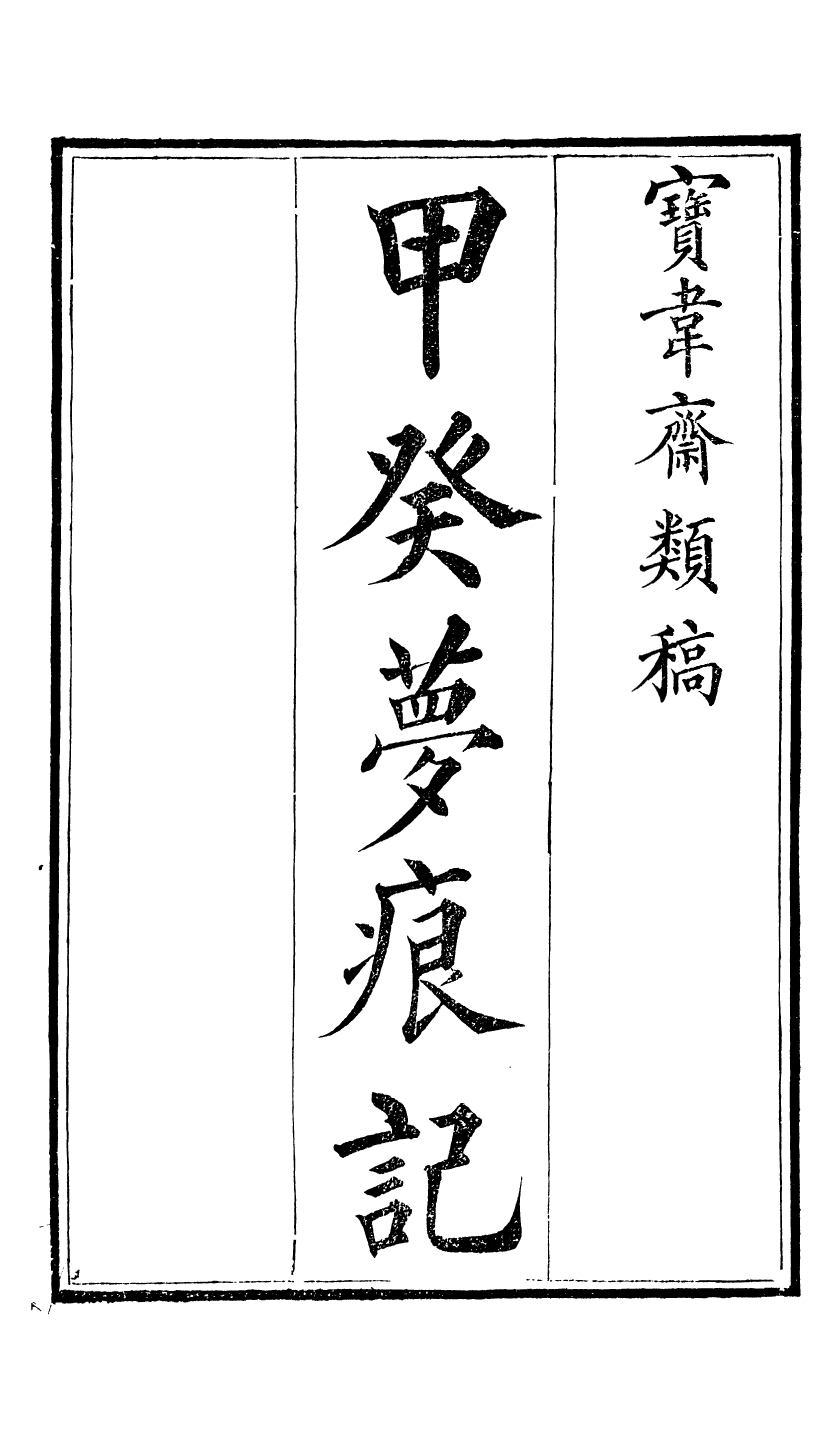 寶韋齋類稿
甲癸夢痕記